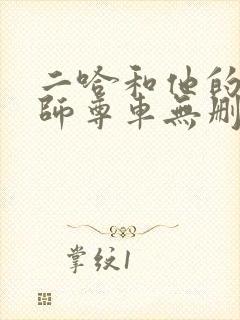 二哈和他的
師尊車無刪
掌纹1